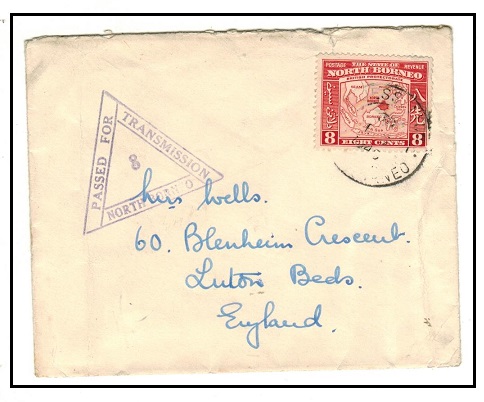 POSTAGE THE STATE OF REVENUE
NORTH BORNEO
BRITISH PROTECTORATE
8 EIGHT CENTS 8
PASSED FOR
TRANSMISSION
8
NORTH
Mrs Wells.
60. Blenheim Crescent.
Luton Beds.
England.